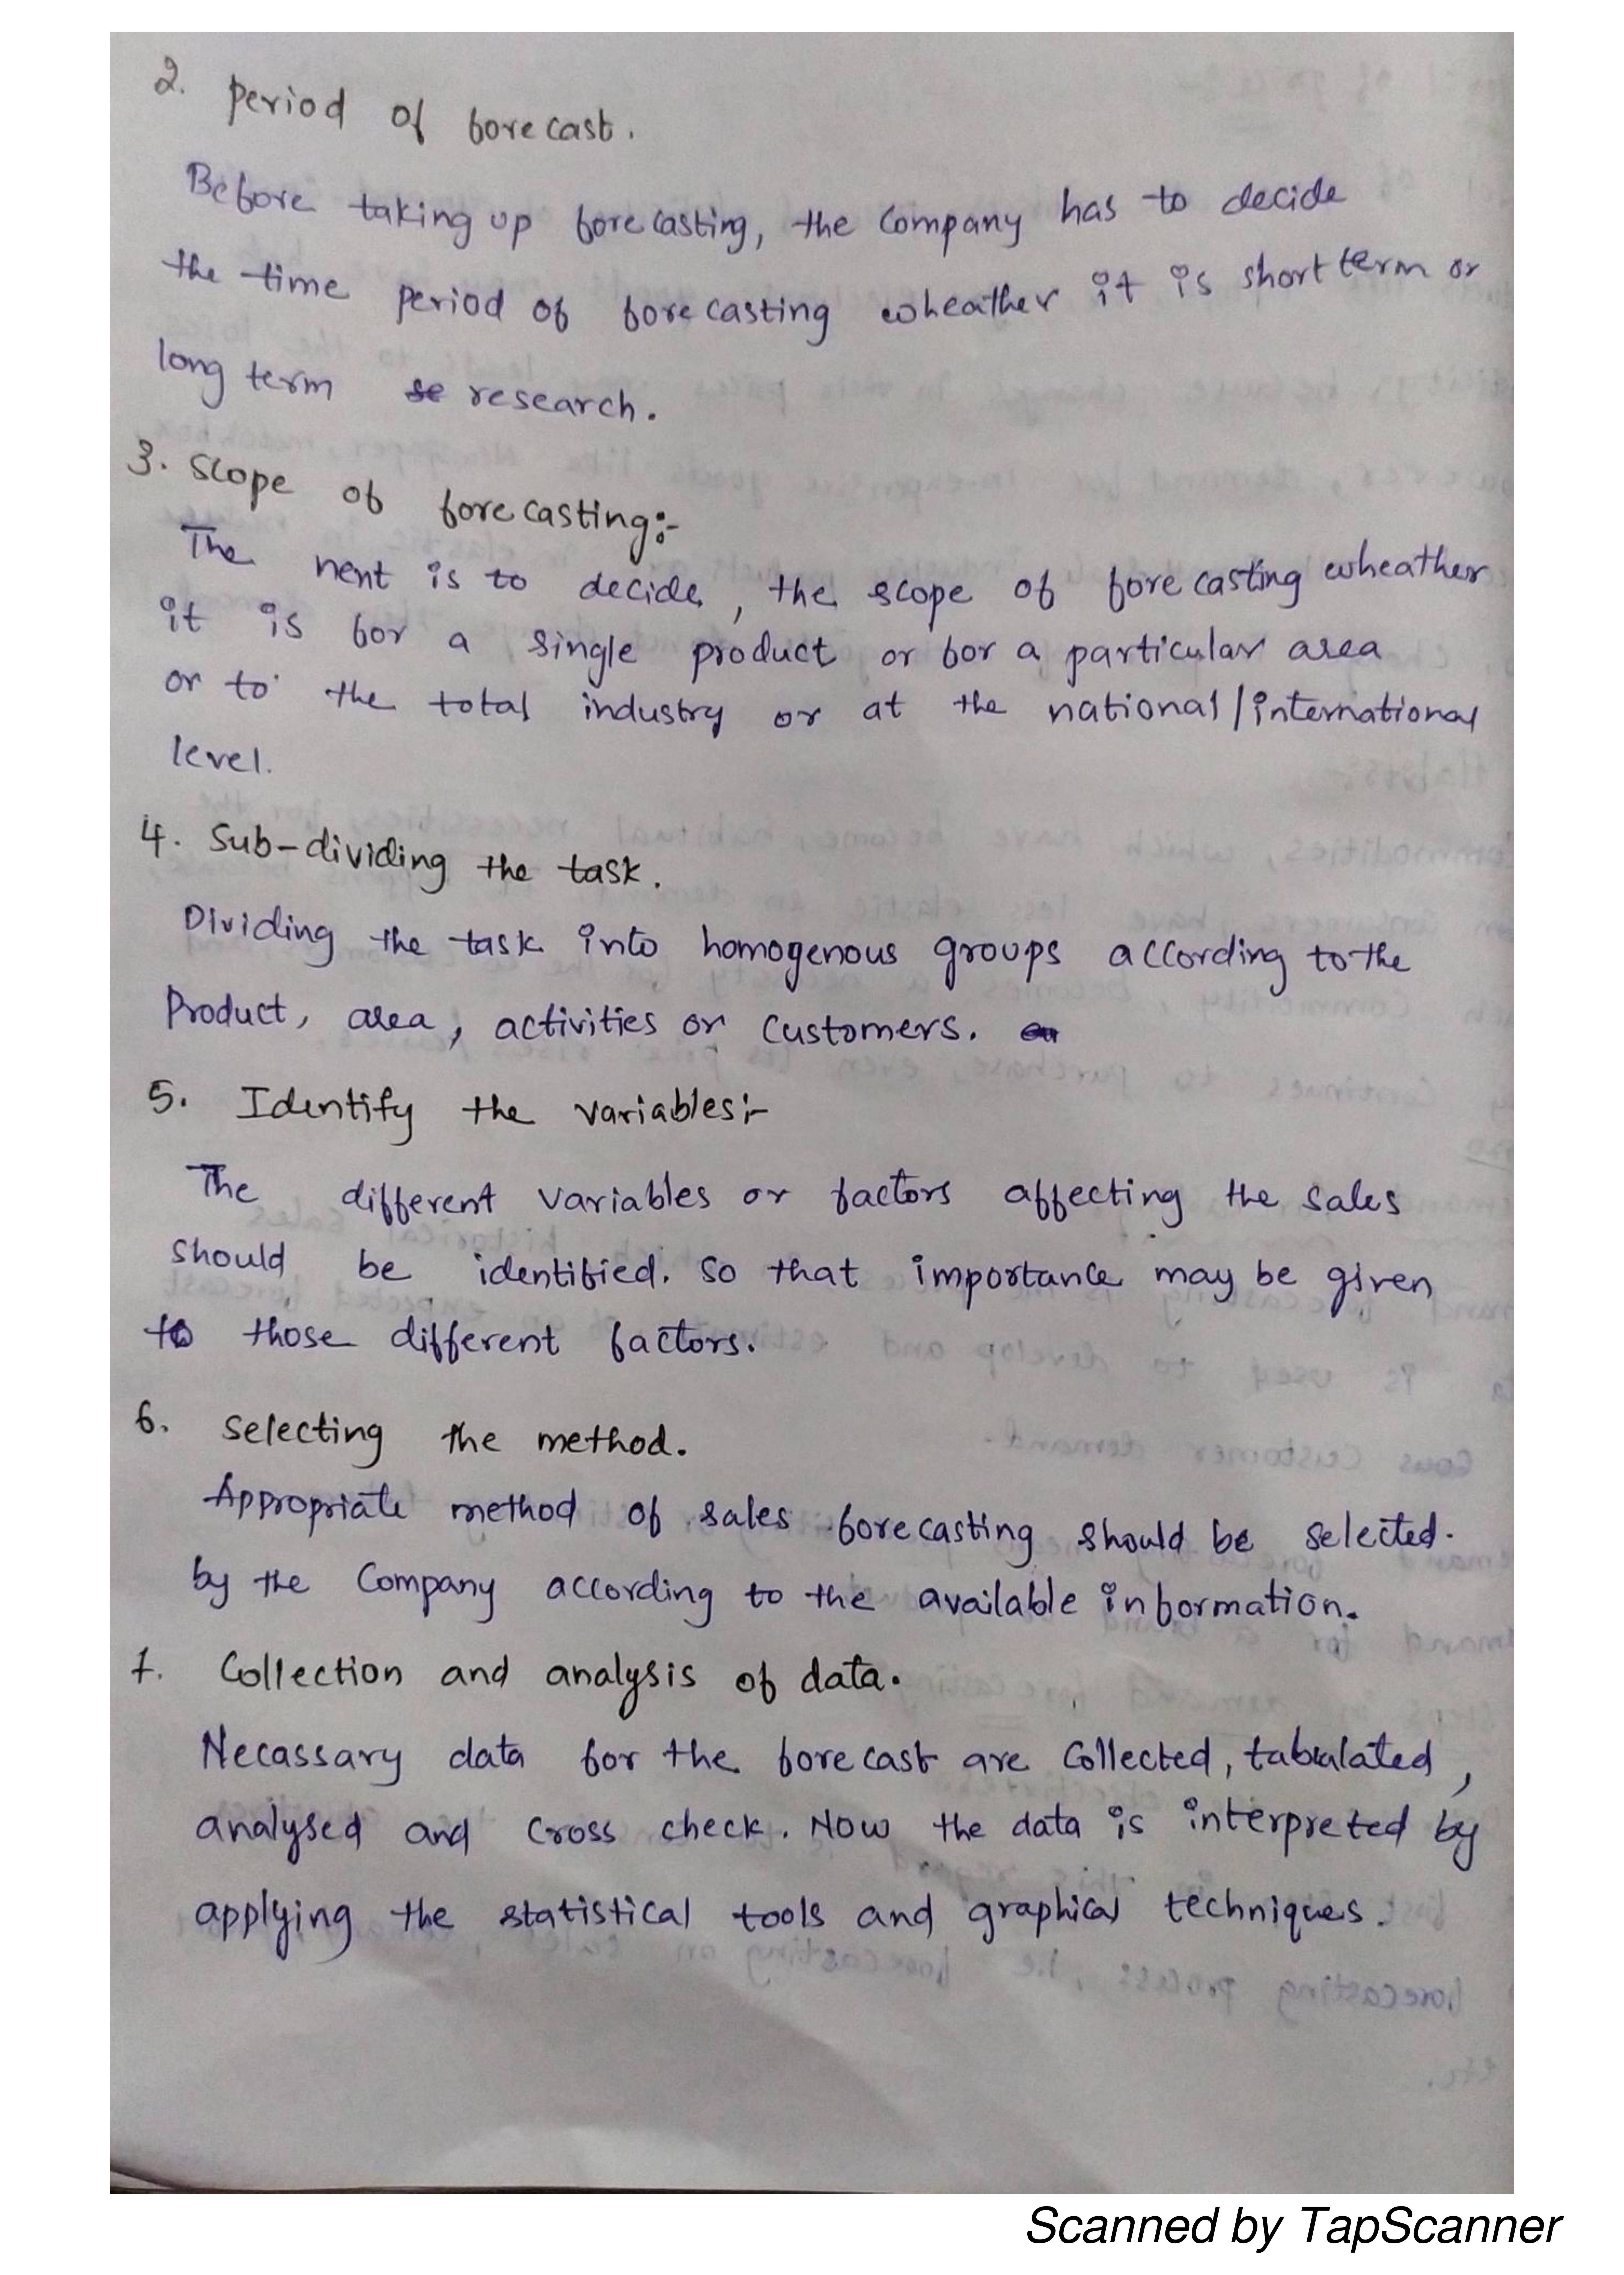 2. Period of forecast.
Before taking up forecasting, the Company has to decide
the time period of forecasting wheather it is short term or
long term research.
3. Scope of forecasting:-
The next is to decide, the scope of forecasting wheather
it is for a single product or for a particular area
or to the total industry or at the national/international
level.
4. Sub-dividing the task.
Dividing the task into homogenous groups according to the
Product, area, activities or Customers.
5. Identify the variables:-
The different variables or factors affecting the sales
should be identified. So that importance may be given
to those different factors.
6. Selecting the method.
Appropriate method of sales forecasting should be selected.
by the Company according to the available information.
7. Collection and analysis of data.
Necassary data for the forecast are Collected, tabulated,
analysed and Cross check. Now the data is interpreted by
applying the statistical tools and graphical techniques.
Scanned by TapScanner